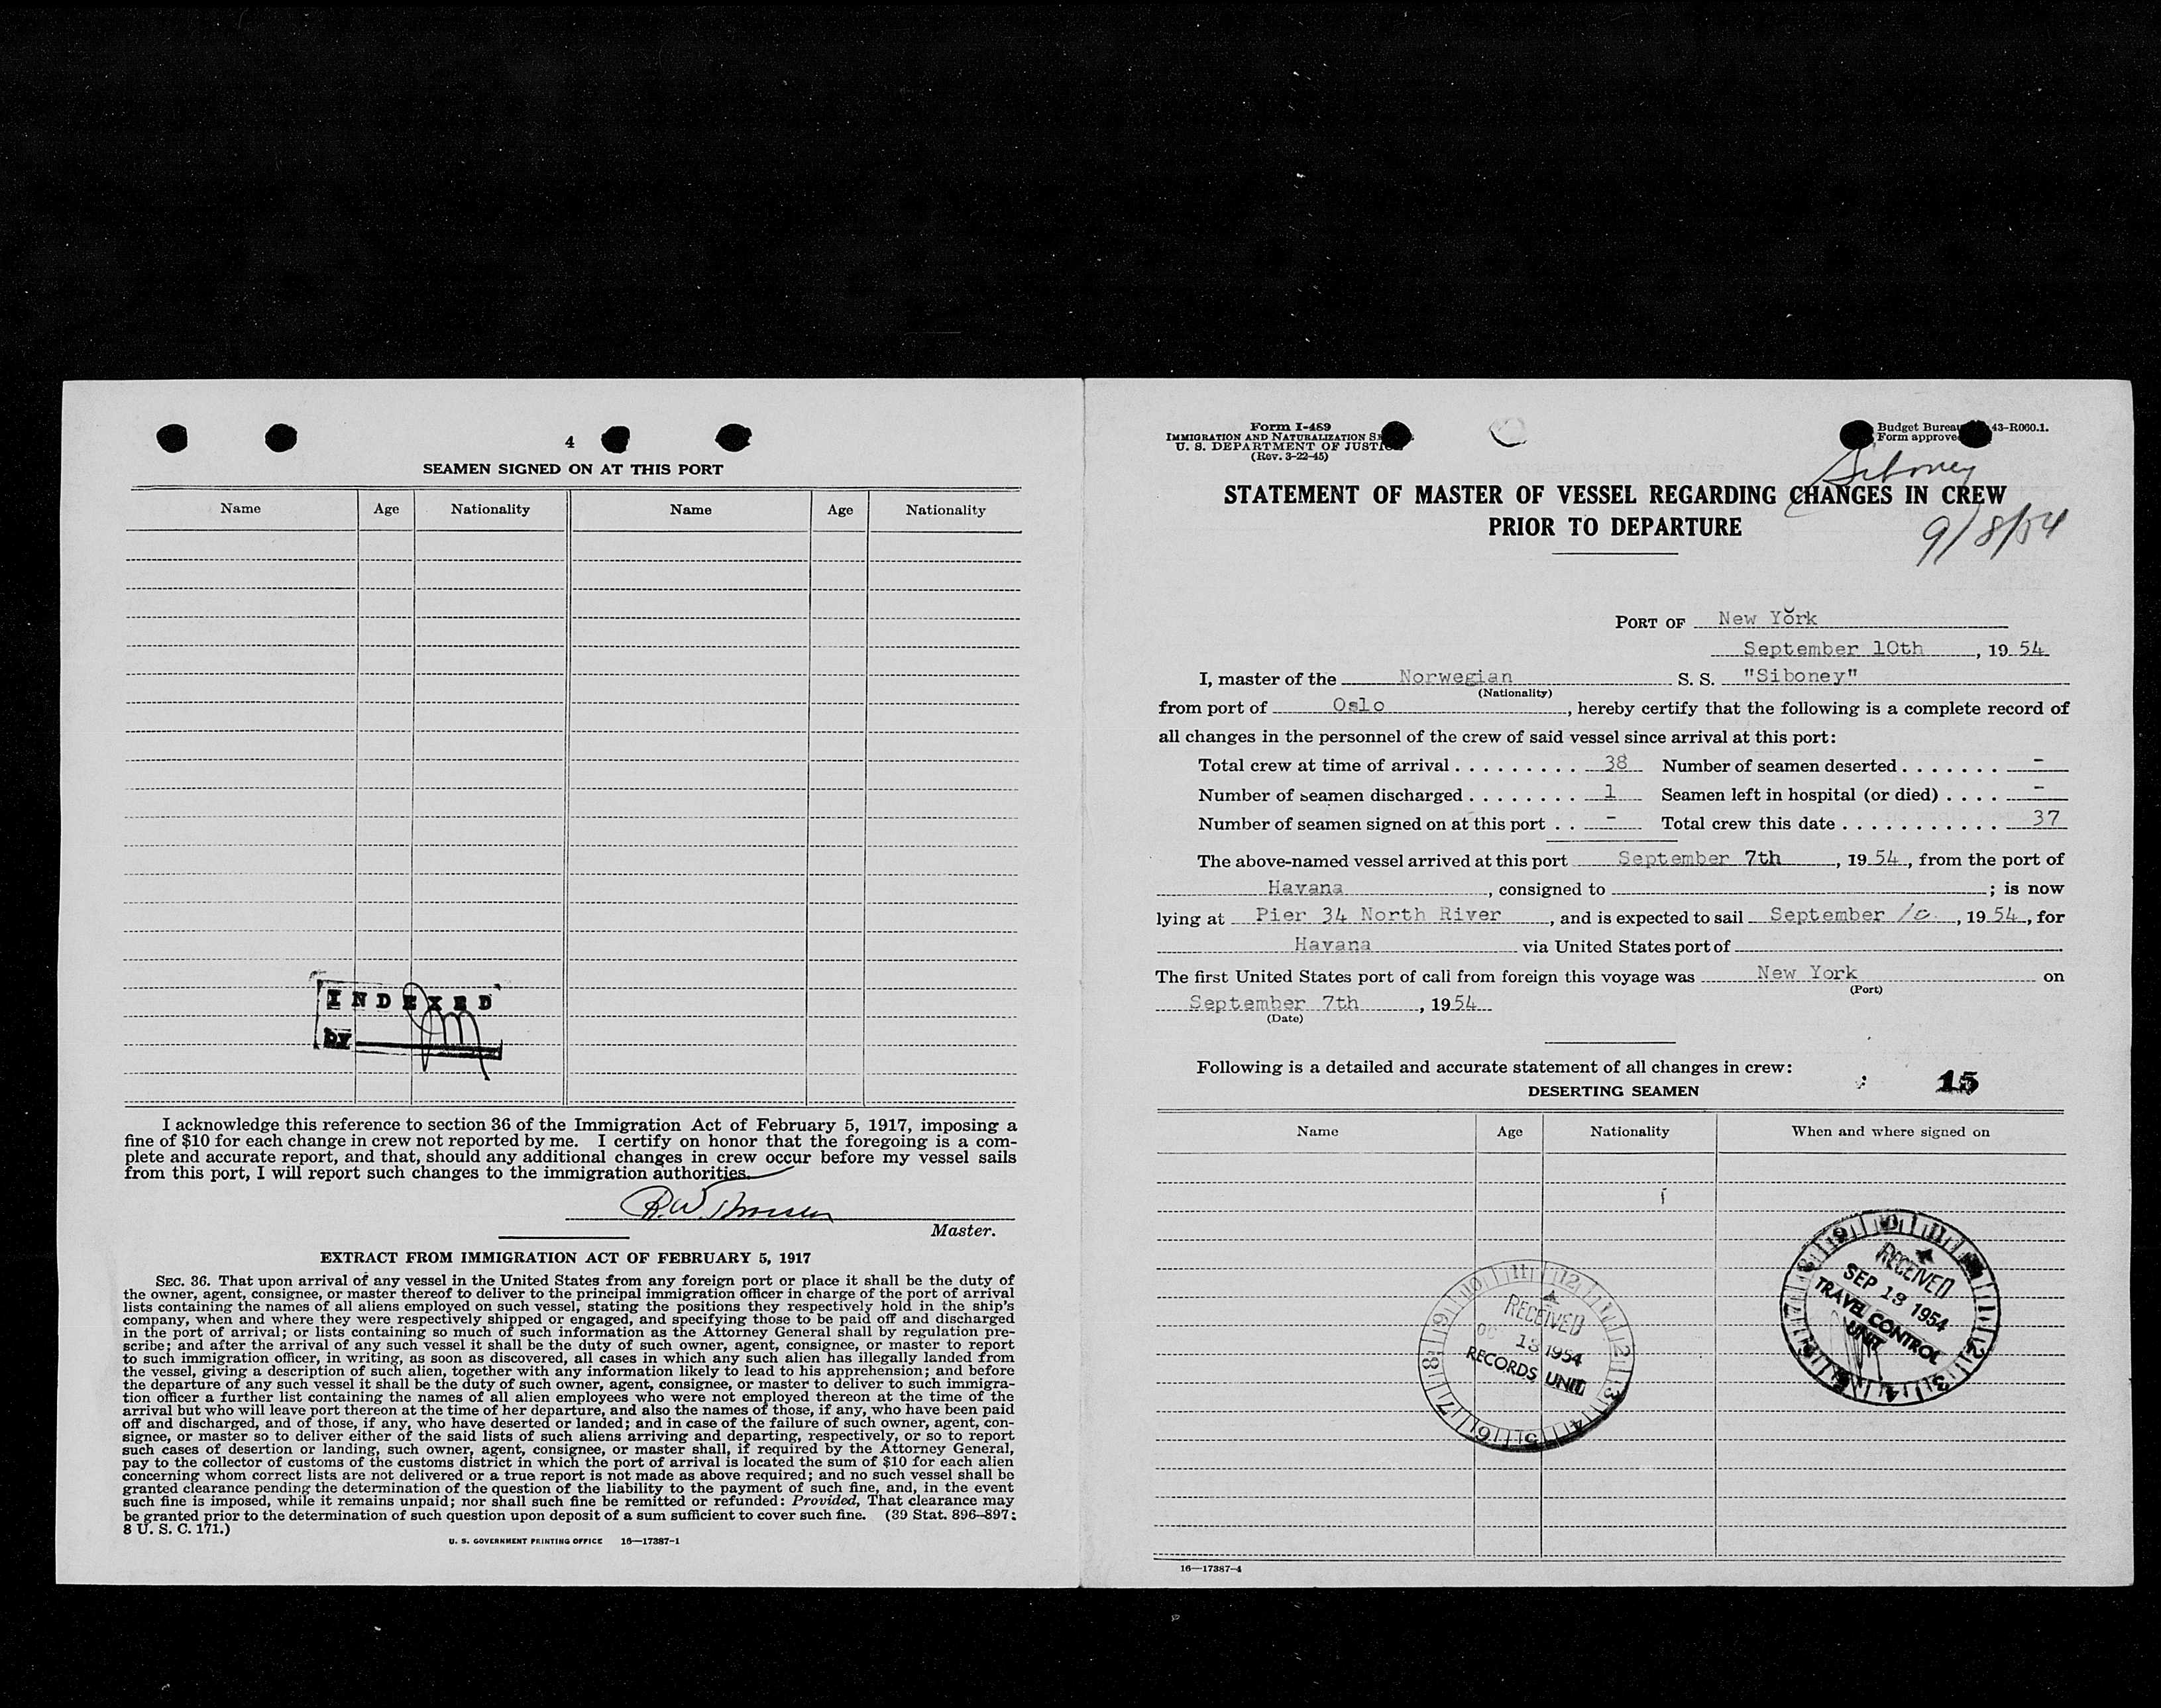 4
SEAMEN SIGNED ON AT THIS PORT
Name Age Nationality Name Age Nationality
INDEXED
BY
I acknowledge this reference to section 36 of the Immigration Act of February 5, 1917, imposing a
fine of $10 for each change in crew not reported by me. I certify on honor that the foregoing is a com-
plete and accurate report, and that, should any additional changes in crew occur before my vessel sails
from this port, I will report such changes to the immigration authorities.
Master.
EXTRACT FROM IMMIGRATION ACT OF FEBRUARY 5, 1917
SEC. 36. That upon arrival of any vessel in the United States from any foreign port or place it shall be the duty of
the owner, agent, consignee, or master thereof to deliver to the principal immigration officer in charge of the port of arrival
lists containing the names of all aliens employed on such vessel, stating the positions they respectively hold in the ship's
company, when and where they were respectively shipped or engaged, and specifying those to be paid off and discharged
in the port of arrival; or lists containing so much of such information as the Attorney General shall by regulation pre-
scribe; and after the arrival of any such vessel it shall be the duty of such owner, agent, consignee, or master to report
to such immigration officer, in writing, as soon as discovered, all cases in which any such alien has illegally landed from
the vessel, giving a description of such alien, together with any information likely to lead to his apprehension; and before
the departure of any such vessel it shall be the duty of such owner, agent, consignee, or master to deliver to such immigra-
tion officer a further list containing the names of all alien employees who were not employed thereon at the time of the
arrival but who will leave port thereon at the time of her departure, and also the names of those, if any, who have been paid
off and discharged, and of those, if any, who have deserted or landed; and in case of the failure of such owner, agent, con-
signee, or master so to deliver either of the said lists of such aliens arriving and departing, respectively, or so to report
such cases of desertion or landing, such owner, agent, consignee, or master shall, if required by the Attorney General,
pay to the collector of customs of the customs district in which the port of arrival is located the sum of $10 for each alien
concerning whom correct lists are not delivered or a true report is not made as above required; and no such vessel shall be
granted clearance pending the determination of the question of the liability to the payment of such fine, and, in the event
such fine is imposed, while it remains unpaid; nor shall such fine be remitted or refunded: Provided, That clearance may
be granted prior to the determination of such question upon deposit of a sum sufficient to cover such fine. (39 Stat. 896-897;
8 U. S. C. 171.)
U. S. GOVERNMENT PRINTING OFFICE 16—17387-1
Form I-489
IMMIGRATION AND NATURALIZATION
U. S. DEPARTMENT OF JUSTICE
(Rev. 3-22-45)
Budget Bureau 43-R060.1.
Form approved
Siboney
STATEMENT OF MASTER OF VESSEL REGARDING CHANGES IN CREW
PRIOR TO DEPARTURE
9/8/54
PORT OF New York
September 10th, 19 54
I, master of the Norwegian S. S. "Siboney"
(Nationality)
from port of Oslo, hereby certify that the following is a complete record of
all changes in the personnel of the crew of said vessel since arrival at this port:
Total crew at time of arrival . . . . . . . . . 38 Number of seamen deserted . . . . . . . -
Number of seamen discharged . . . . . . . . 1 Seamen left in hospital (or died) . . . . -
Number of seamen signed on at this port . . - Total crew this date . . . . . . . . . . . 37
The above-named vessel arrived at this port September 7th, 19 54, from the port of
Havana, consigned to ; is now
lying at Pier 34 North River, and is expected to sail September 10, 19 54, for
Havana via United States port of
The first United States port of call from foreign this voyage was New York on
(Port)
September 7th, 19 54
(Date)
Following is a detailed and accurate statement of all changes in crew:
15
DESERTING SEAMEN
Name Age Nationality When and where signed on
RECEIVED
SEP 13 1954
TRAVEL CONTROL
UNIT
RECEIVED
13 1954
RECORDS UNIT
16—17387-4